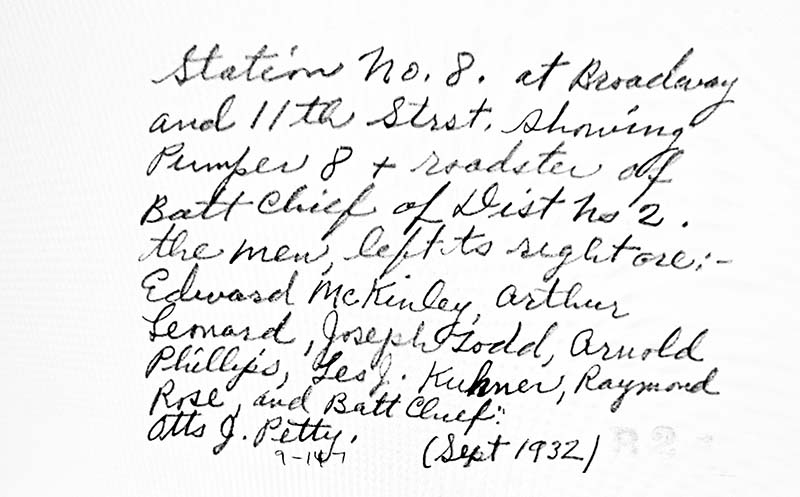 Station No. 8. at Broadway
and 11th Strst. showing
Pumper 8 + roadster of
Batt Chief of Dist No 2.
the men, left to right are:-
Edward McKinley, Arthur
Leonard, Joseph Todd, Arnold
Phillips, Les J. Kuhner, Raymond
Rose, and Batt Chief:
Otto J. Petty.
9-14-
(Sept 1932)